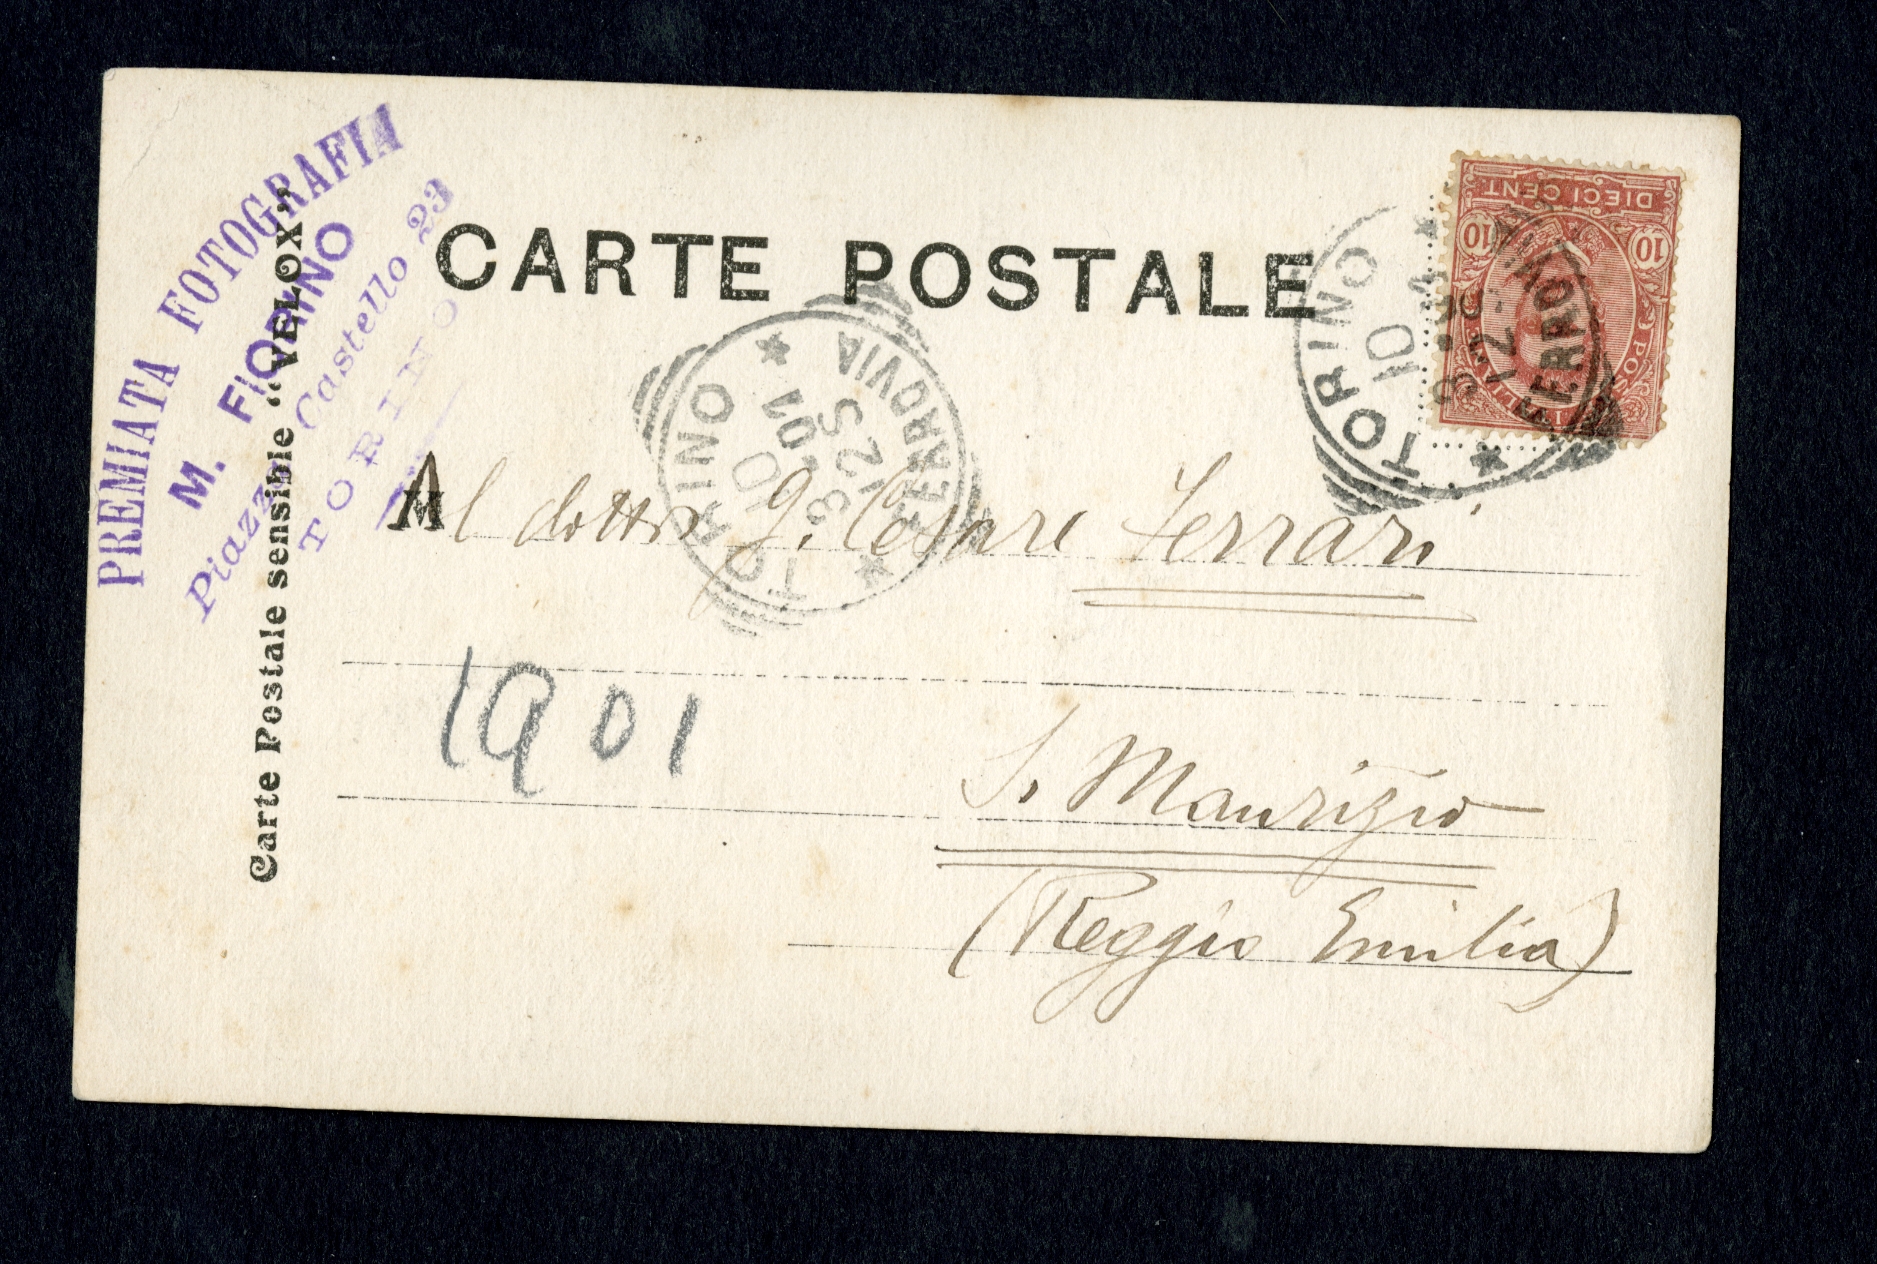 PREMIATA FOTOGRAFIA
M. FIORINO
Piazza Castello 23
TORINO
Carte Postale sensible "VELOX"
CARTE POSTALE
DIECI CENT
10 10
TORINO
FERROVIA
10 - 01
12 S
TORINO
FERROVIA
10
M
Al dottor G. Cesare Ferrari
1901
S. Maurizio
(Reggio Emilia)